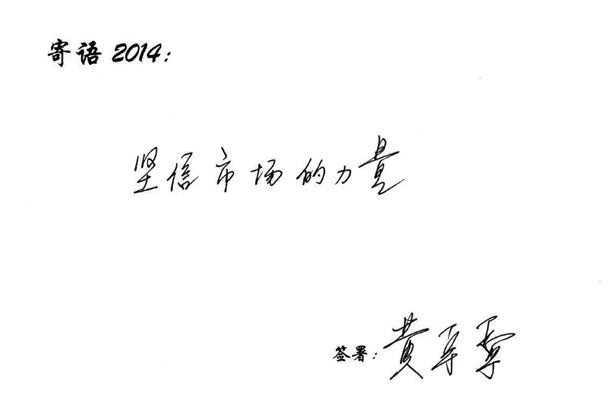 寄语 2014:
坚信市场的力量
签署: 黄